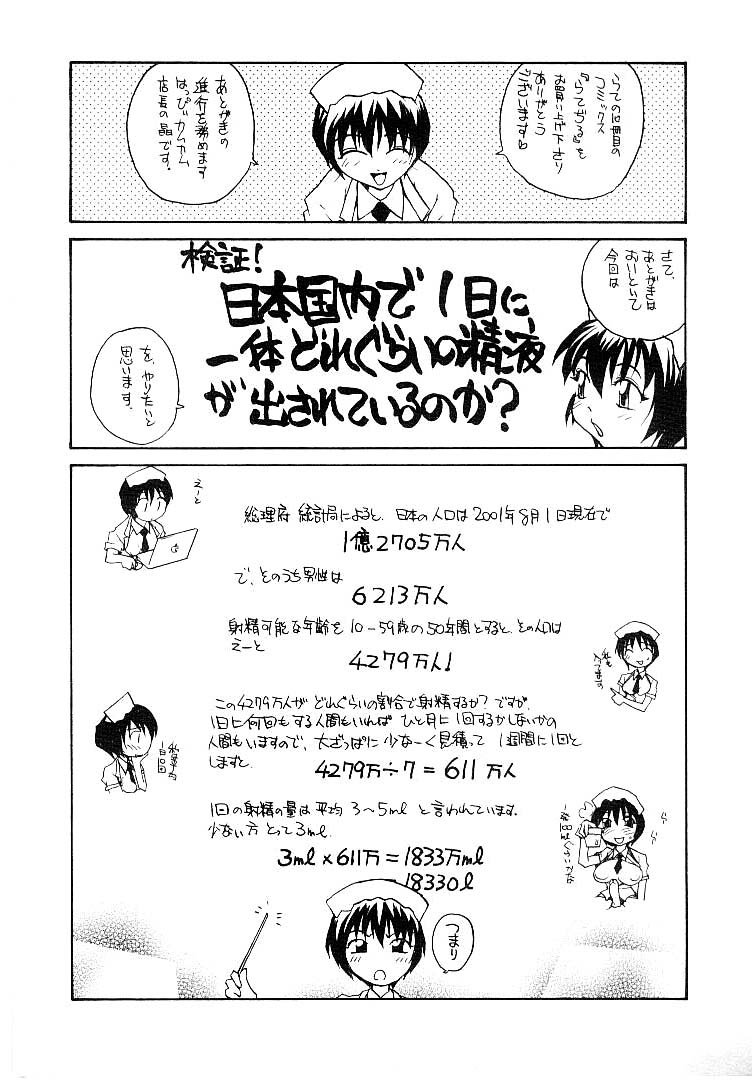 らつての10冊目の
コミックス
『らてぢる』を
お買い上げ下さり
ありがとう
ございます♡
あとがきの
進行を務めます
はっぴぃカッカム
店長の晶です。
さて、
あとがきは
おいといて
今回は
検証！
日本国内で1日に、
一体どれぐらいの精液
が出されているのか？
を、やりたいと
思います。
えーと
総理府 統計局によると、日本の人口は2001年8月1日現在で
1億2705万人
で、そのうち男性は
6213万人
射精可能な年齢を10－59歳の50年間とすると、その人口は
えーと
4279万人！
私も
入ってます
この4279万人がどれぐらいの割合で射精するか？ですが、
1日に何回もする人間もいればひと月に1回するかしないかの
人間もいますので、大ざっぱに少なーく見積って1週間に1回と
しますと、
4279万÷7＝611万人
1回の射精の量は平均3〜5mlと言われています。
少ない方とって3ml。
3ml×611万＝1833万ml
＝18330l
一発100mlぐらいかな
つまり